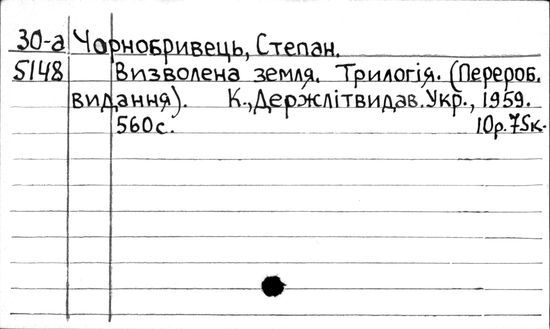 30-а Чорнобривець, Степан.
5148 Визволена земля. Трилогія. (Перероб.
видання). К., Держлітвидав. Укр., 1959.
560 с. 10р. 75к.